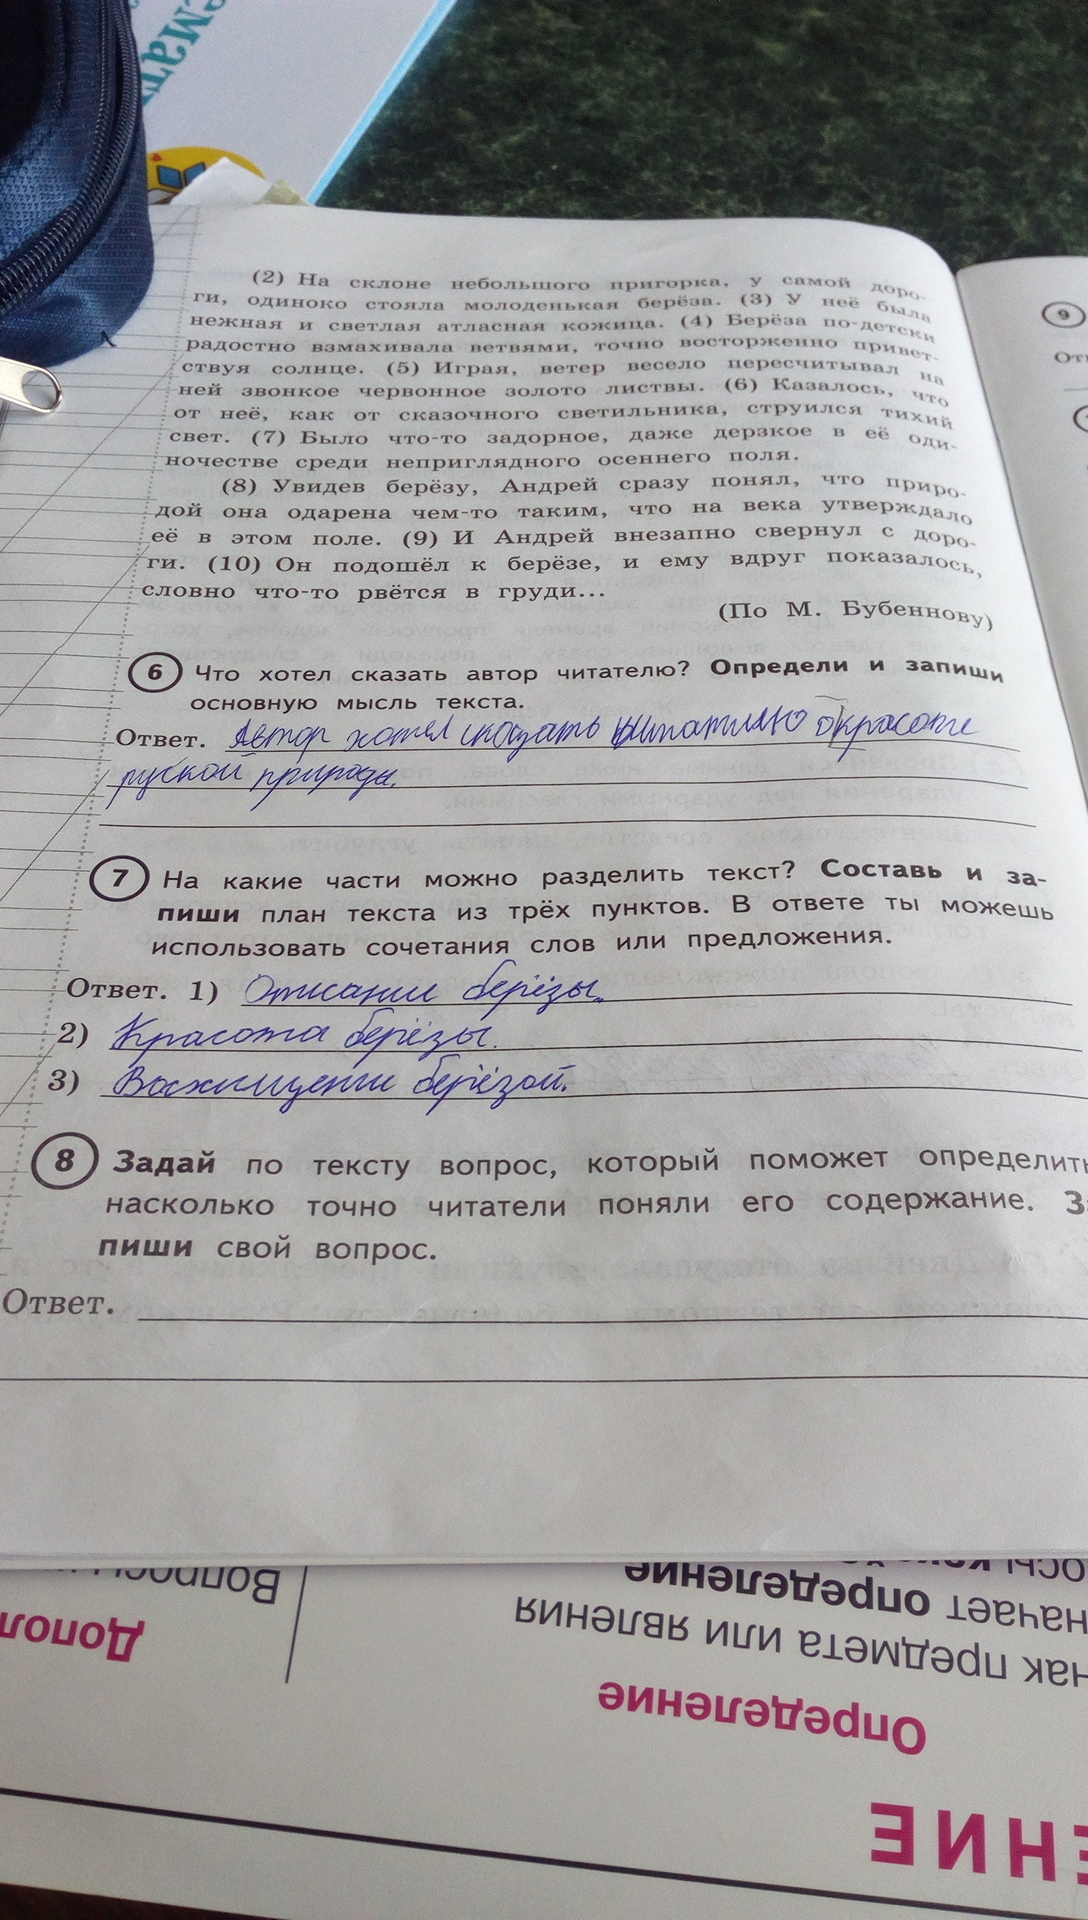 еМат
(2) На склоне небольшого пригорка, у самой доро-
ги, одиноко стояла молоденькая берёза. (3) У неё была
нежная и светлая атласная кожица. (4) Берёза по-детски
радостно взмахивала ветвями, точно восторженно привет-
ствуя солнце. (5) Играя, ветер весело пересчитывал на
ней звонкое червонное золото листвы. (6) Казалось, что
от неё, как от сказочного светильника, струился тихий
свет. (7) Было что-то задорное, даже дерзкое в её оди-
ночестве среди неприглядного осеннего поля.
(8) Увидев берёзу, Андрей сразу понял, что приро-
дой она одарена чем-то таким, что на века утверждало
её в этом поле. (9) И Андрей внезапно свернул с доро-
ги. (10) Он подошёл к берёзе, и ему вдруг показалось,
словно что-то рвётся в груди...
(По М. Бубеннову)
6 Что хотел сказать автор читателю? Определи и запиши
основную мысль текста.
Ответ. Автор хотел сказать о красоте
руской природы.
7 На какие части можно разделить текст? Составь и за-
пиши план текста из трёх пунктов. В ответе ты можешь
использовать сочетания слов или предложения.
Ответ. 1) Описание берёзы.
2) Красота берёзы.
3) Восхищение берёзой.
8 Задай по тексту вопрос, который поможет определить
насколько точно читатели поняли его содержание. За
пиши свой вопрос.
Ответ.
9
От
Вопросы
Допол
осы
начает определение
нак предмета или явления
Определение
ЕНИЕ